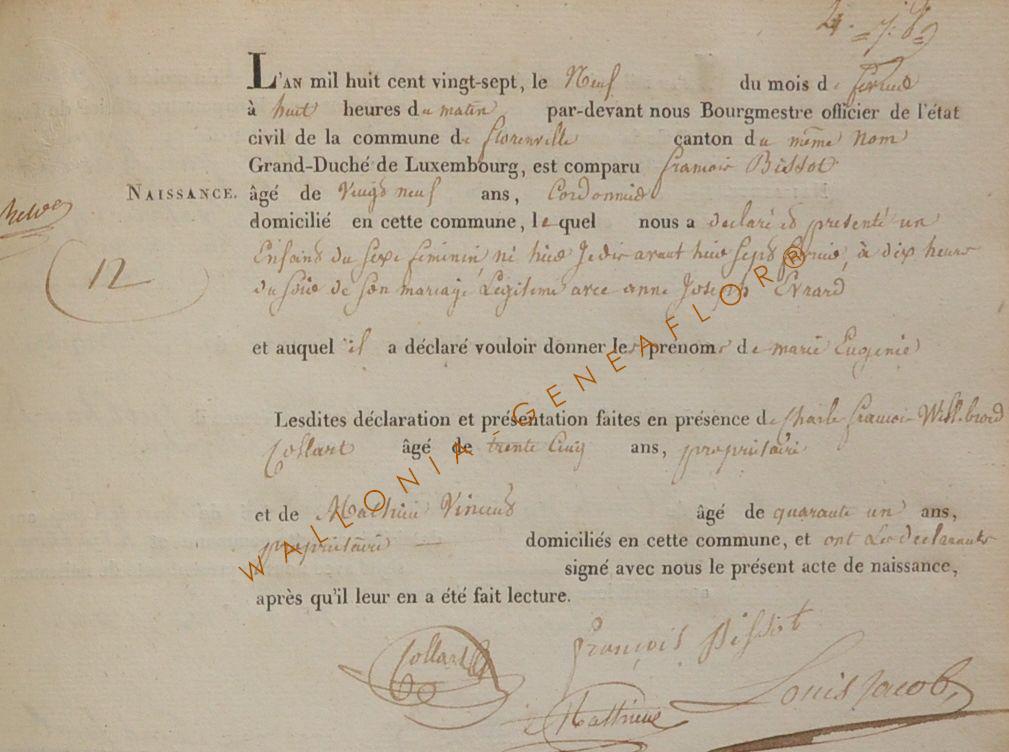 L'AN mil huit cent vingt-sept, le Neuf du mois de
à huit heures du matin par-devant nous Bourgmestre officier de l'état
civil de la commune de florenville canton du même Nom
Grand-Duché de Luxembourg, est comparu françois Bissot
NAISSANCE. âgé de Vingt neuf ans, Cordonnier
domicilié en cette commune, lequel nous a declaré et presenté un
Enfant du sexe feminin, né avant sept à dix heures
du soir de son mariage Legitime avec anne Joseph Evrard
12
et auquel il a déclaré vouloir donner les prénoms de marie Eugenie
Lesdites déclaration et présentation faites en présence de Charle françois Willibrord
Collart âgé de trente Cinq ans, propriétaire
et de Mathieu Vincent âgé de quarante un ans,
propriétaire domiciliés en cette commune, et ont Les declarants
signé avec nous le présent acte de naissance,
après qu'il leur en a été fait lecture.
Collart François Bissot
Mathieu Louis Jacob
WALLONIA-GENEAFLOR®